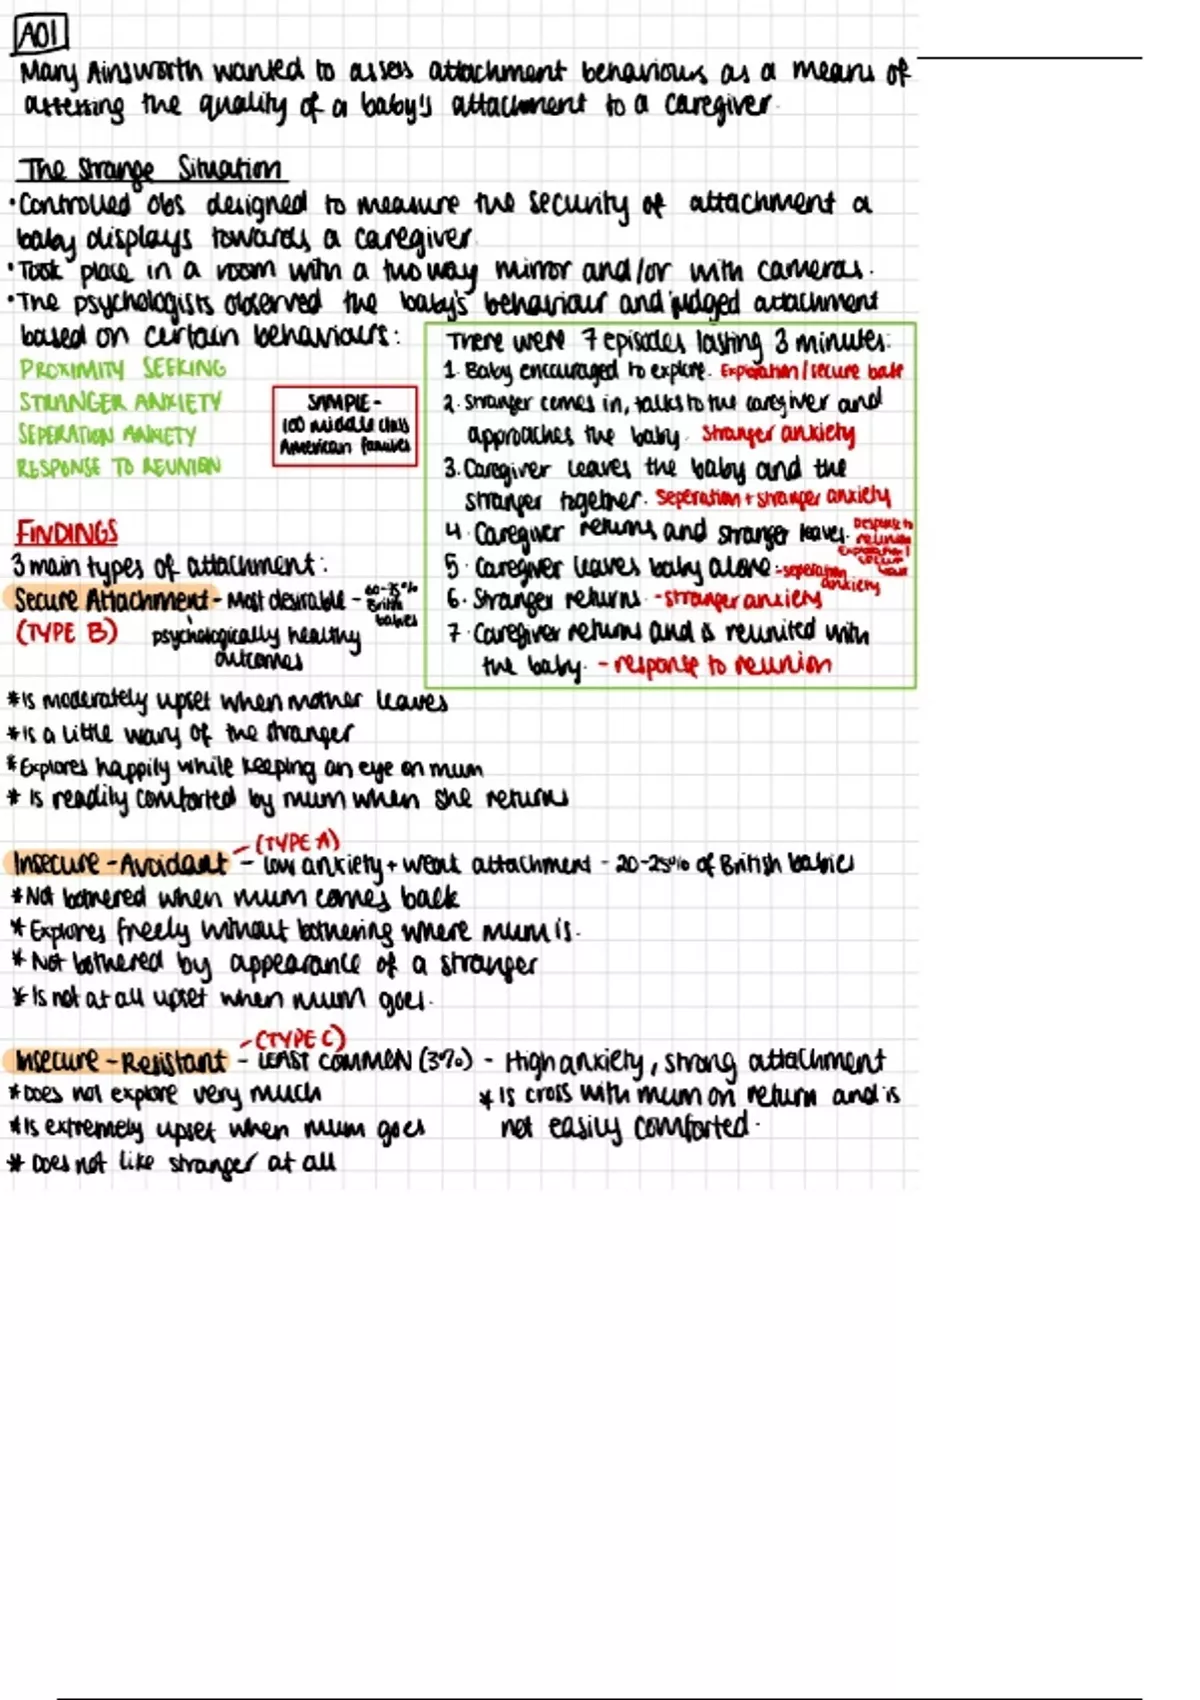 AO1
Mary Ainsworth wanted to assess attachment behaviours as a means of
assessing the quality of a baby's attachment to a caregiver.
The Strange Situation
•Controlled obs designed to measure the security of attachment a
baby displays towards a caregiver.
•Took place in a room with a two way mirror and/or with cameras.
•The psychologists observed the baby's behaviour and judged attachment
based on certain behaviours:
PROXIMITY SEEKING
STRANGER ANXIETY
SEPERATION ANXIETY
RESPONSE TO REUNION
SAMPLE -
100 middle class
American families
There were 7 episodes lasting 3 minutes:
1. Baby encouraged to explore. Exploration/secure base
2. Stranger comes in, talks to the caregiver and
approaches the baby. Stranger anxiety
3. Caregiver leaves the baby and the
stranger together. Seperation + stranger anxiety
4. Caregiver returns and stranger leaves. Response to
reunion
Exploration/
secure
base
5. Caregiver leaves baby alone. -seperation
anxiety
6. Stranger returns. -stranger anxiety
7. Caregiver returns and is reunited with
the baby. - response to reunion
FINDINGS
3 main types of attachment:
Secure Attachment - Most desirable - 60-75%
British
babies
(TYPE B) psychologically healthy
outcomes
*is moderately upset when mother leaves
*is a little wary of the stranger
*Explores happily while keeping an eye on mum
* is readily comforted by mum when she returns
(TYPE A)
Insecure-Avoidant - low anxiety + weak attachment - 20-25% of British babies
*Not bothered when mum comes back
*Explores freely without bothering where mum is.
*Not bothered by appearance of a stranger
*Is not at all upset when mum goes.
(TYPE C)
Insecure-Resistant - LEAST COMMON (3%) - High anxiety, strong attachment
*Does not explore very much
*Is extremely upset when mum goes
*Does not like stranger at all
*Is cross with mum on return and is
not easily comforted.